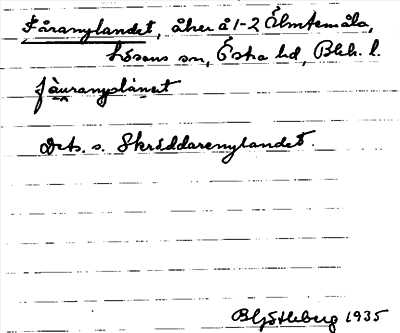 Fåranylandet, åker å 1-2 Elmtemåla,
Lösens sn, Östra hd, Blek. l.
fåuranyslánet
Dets. s. Skräddarenylandet.
B Götleberg 1935